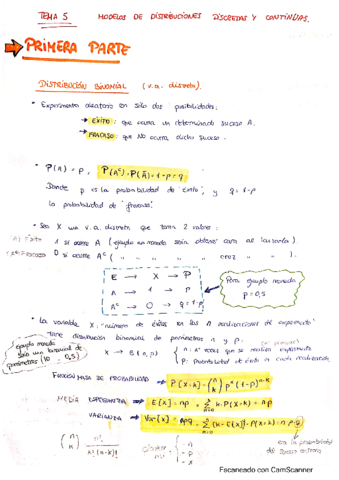 TEMA 5 MODELOS DE DISTRIBUCIONES DISCRETAS Y CONTINUAS.
PRIMERA PARTE
DISTRIBUCIÓN BINOMIAL (v.a. discreta).
* Experimento aleatorio con sólo dos posibilidades:
→ ÉXITO: que ocurra un determinado suceso A.
→ FRACASO: que NO ocurra dicho suceso.
* P(A) = p, P(Aᶜ) = P(Ā) = 1-p = q
Donde p es la probabilidad de "éxito", y q = 1-p
la probabilidad de "fracaso".
* Sea X una v.a. discreta que toma 2 valores:
(A) Éxito 1 si ocurre A (ejemplo en moneda sería obtener cara al lanzarla).
Fracaso 0 si ocurre Aᶜ ( " " " " cruz " " ).
E → X → P
A → 1 → P
Aᶜ → 0 → q = 1-p
Para ejemplo moneda
p = 0,5
* La variable X: "número de éxitos en las n realizaciones del experimento"
tiene distribución binomial de parámetros n y p.
ejemplo moneda
sería una binomial de
parámetros (10, 0,5)
X → B(n, p)
n: nº veces que se realiza experimento
p: Probabilidad de éxito en cada realización
FUNCIÓN MASA DE PROBABILIDAD → P(X=k) = (n k) pᵏ (1-p)ⁿ⁻ᵏ
MEDIA ESPERANZA → E[X] = np = Σ k·P(X=k) = np
VARIANZA → Var[X] = npq = Σ (k-E[X])²·P(X=k) = npq
(n k) = n! / k!(n-k)!
Escaneado con CamScanner